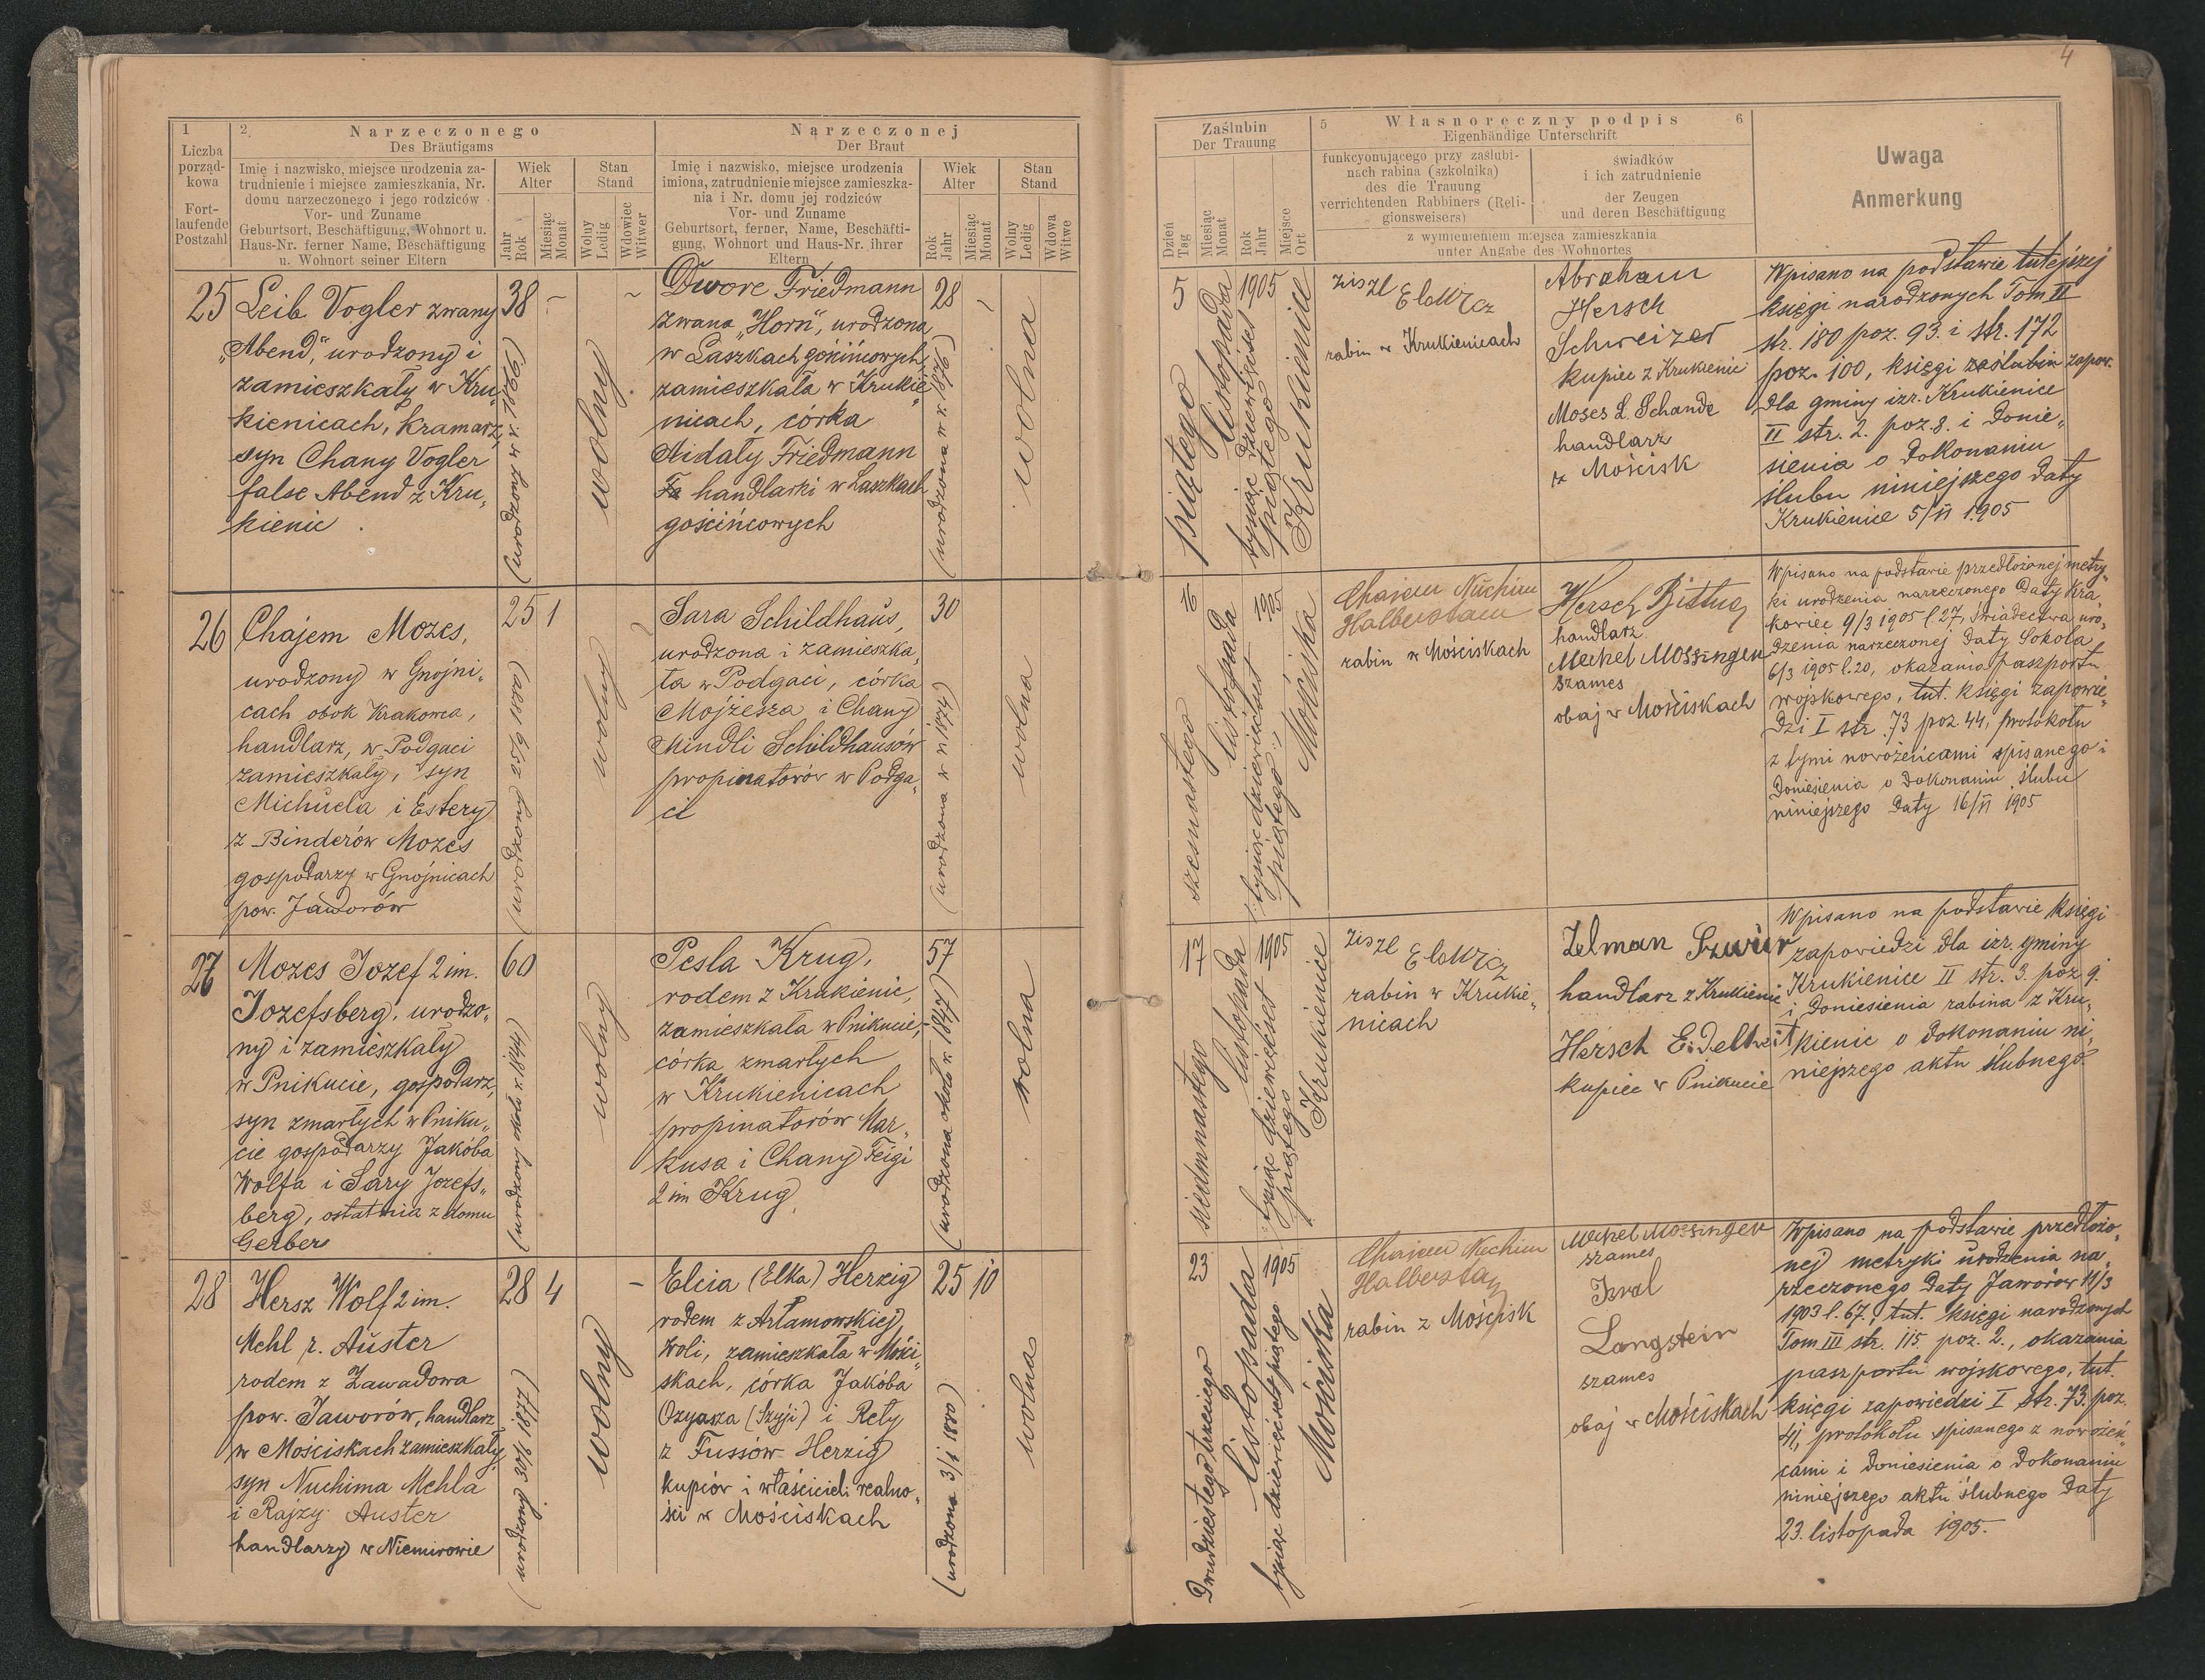 4
1
Liczba
porząd-
kowa
Fort-
laufende
Postzahl
2.
Narzeczonego
Des Bräutigams
Imię i nazwisko, miejsce urodzenia za-
trudnienie i miejsce zamieszkania, Nr.
domu narzeczonego i jego rodziców
Vor- und Zuname
Geburtsort, Beschäftigung, Wohnort u.
Haus-Nr. ferner Name, Beschäftigung
u. Wohnort seiner Eltern
Wiek
Alter
Jahr
Rok
Miesiąc
Monat
Stan
Stand
Wolny
Ledig
Wdowiec
Witwer
Narzeczonej
Der Braut
Imię i nazwisko, miejsce urodzenia
imiona, zatrudnienie miejsce zamieszka-
nia i Nr. domu jej rodziców
Vor- und Zuname
Geburtsort, ferner, Name, Beschäfti-
gung, Wohnort und Haus-Nr. ihrer
Eltern
Wiek
Alter
Rok
Jahr
Miesiąc
Monat
Stan
Stand
Wolny
Ledig
Wdowa
Witwe
Zaślubin
Der Trauung
Dzień
Tag
Miesiąc
Monat
Rok
Jahr
Miejsce
Ort
5
Własnoręczny podpis
6
Eigenhändige Unterschrift
funkcyonującego przy zaślubi-
nach rabina (szkolnika)
des die Trauung
verrichtenden Rabbiners (Reli-
gionsweisers)
świadków
i ich zatrudnienie
der Zeugen
und deren Beschäftigung
z wymienieniem miejsca zamieszkania
unter Angabe des Wohnortes
Uwaga
Anmerkung
25
Leib Vogler zwany
„Abend", urodzony i
zamieszkały w Kru„
kienicach, kramarz,
syn Chany Vogler
false Abend z Kru„
kienic
38
(urodzony w r. 1866)
wolny
Dwore Friedmann
zwana „Horn", urodzona
w Laszkach gościńcowych
zamieszkała w Krukie„
nicach, córka
Aidały Friedmann
handlarki w Laszkach
gościńcowych
28
(urodzona w r. 1876)
wolna
5
piątego
listopada
1905
tysiąc dziewięćset
piątego
Krukienice
Ziszl Elowicz
rabin w Krukienicach
Abraham
Hersch
Schweizer
kupiec z Krukienic
Moses L. Schande
handlarz
z Mościsk
Wpisano na podstawie tutejszej
księgi narodzonych Tom II
str. 180 poz. 93. i str. 172
poz. 100, księgi zaślubin zapow.
dla gminy izr. Krukienice
II str. 2. poz. 8. i donie„
sienia o dokonaniu
ślubu niniejszego daty
Krukienice 5/XI 1905
26
Chajem Mozes,
urodzony w Gnojni„
cach obok Krakowca,
handlarz, w Podgaci
zamieszkały, syn
Michaela i Estery
z Binderów Mozes
gospodarzy w Gnojnicach
pow. Jaworów
25 1
(urodzony 25/9 1880)
wolny
Sara Schildhaus,
urodzona i zamieszka„
ła w Podgaci, córka
Mojżesza i Chany
Mindli Schildhausów
propinatorów w Podga„
ci
30
(urodzona w r. 1874)
wolna
16
szesnastego
listopada
1905
tysiąc dziewięćset
piątego
Mościska
Chaiem Nuchim
Halberstam
rabin w Mościskach
Hersch Bittug
handlarz
Mechel Mossinger
szames
obaj w Mościskach
Wpisano na podstawie przedłożonej metry„
ki urodzenia narzeczonego daty Kra„
kowiec 9/3 1905 l. 27, świadectwa uro„
dzenia narzeczonej daty Sokola
6/3 1905 l. 20, okazania paszportu
wojskowego, tut. księgi zapowie„
dzi I str. 73 poz. 44, protokołu
z tymi nowożeńcami spisanego i
doniesienia o dokonaniu ślubu
niniejszego daty 16/XI 1905
27
Mozes Jozef 2 im.
Jozefsberg, urodzo„
ny i zamieszkały
w Pnikucie, gospodarz,
syn zmarłych w Pniku„
cie gospodarzy Jakóba
Wolfa i Sary Jozefs„
berg, ostatnia z domu
Gerber
60
(urodzony około r. 1844)
wolny
Pesla Krug,
rodem z Krukienic,
zamieszkała w Pnikucie,
córka zmarłych
w Krukienicach
propinatorów Mar„
kusa i Chany Feigi
2 im Krug.
57
(urodzona około r. 1847)
wolna
17
siedmnastego
listopada
1905
tysiąc dziewięćset
piątego
Krukienice
Ziszl Elowicz
rabin w Krukie„
nicach
Zelman Szwier
handlarz z Krukienic
Hersch Eidelheit
kupiec w Pnikucie
Wpisano na podstawie księgi
zapowiedzi dla izr. gminy
Krukienice II str. 3. poz 9.
i doniesienia rabina z Kru„
kienic o dokonaniu ni„
niejszego aktu ślubnego.
28
Hersz Wolf 2 im.
Mehl r. Auster
rodem z Zawadowa
pow. Jaworów, handlarz
w Mościskach zamieszkały,
syn Nuchima Mehla
i Rajzy Auster
handlarzy w Niemirowie
28 4
(urodzony 30/6 1877)
wolny
Elcia (Elka) Herzig
rodem z Artamowskiej
Woli, zamieszkała w Mości„
skach, córka Jakóba
Ozyasza (Szyji) i Rety
z Fussów Herzig
kupców i właścicieli realno„
ści w Mościskach
25 10
(urodzona 3/1 1880)
wolna
23
Dwudziestego trzeciego
listopada
1905
tysiąc dziewięćset piątego
Mościska
Chaiem Nuchim
Halberstam
rabin z Mościsk
Mechel Mossinger
szames
Izral
Langstein
szames
obaj w Mościskach
Wpisano na podstawie przedłożo„
nej metryki urodzenia na„
rzeczonego daty Jaworów 11/3
1903 l. 67., tut. księgi narodzonych
Tom III str. 115 poz. 2., okazania
paszportu wojskowego, tut.
księgi zapowiedzi I str. 73. poz.
41, protokołu spisanego z nowożeń„
cami i doniesienia o dokonaniu
niniejszego aktu ślubnego daty
23. listopada 1905.